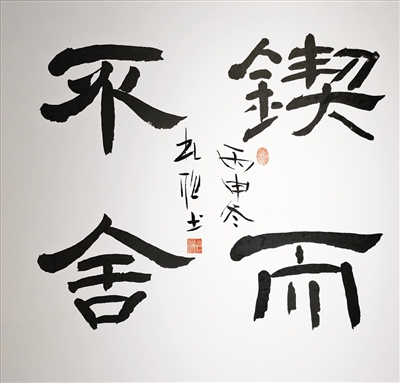 鍥而
不舍
丙申冬